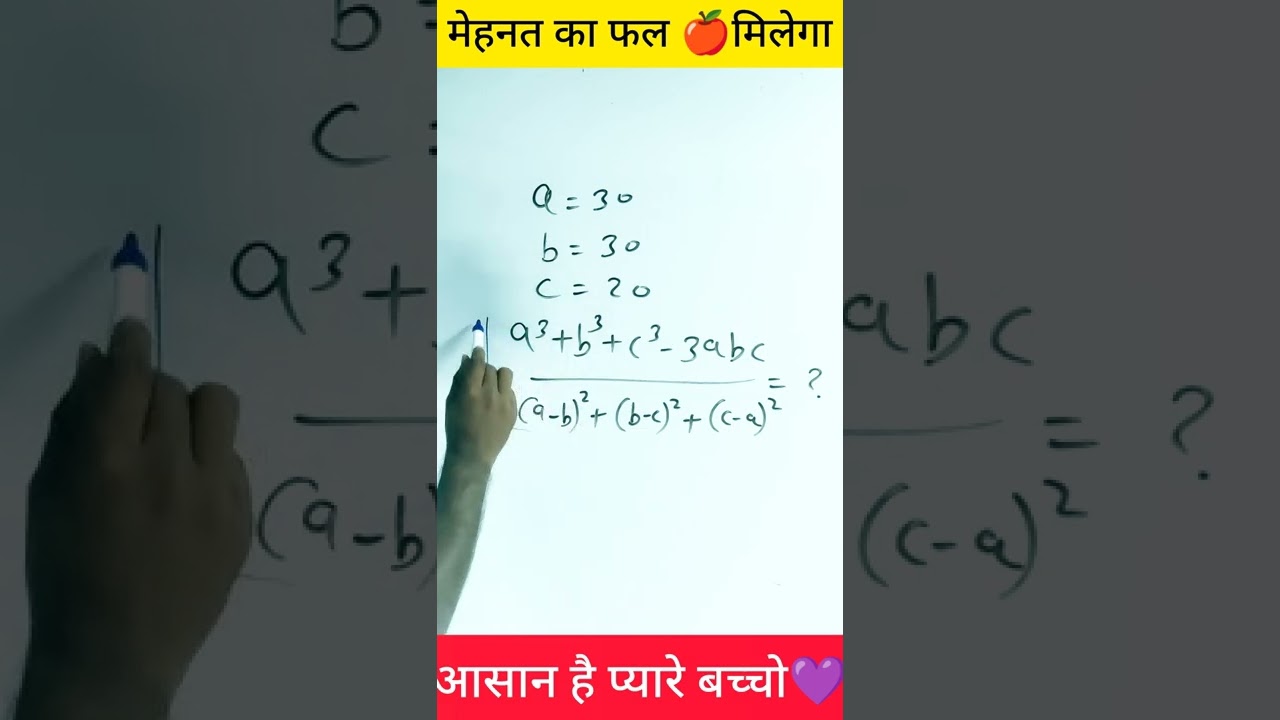 मेहनत का फल 🍎मिलेगा
a = 30
b = 30
c = 20
a³+b³+c³-3abc
= ?
(a-b)²+(b-c)²+(c-a)²
आसान है प्यारे बच्चो💜
b =
c =
a³+
abc
= ?
(a-b)
(c-a)²